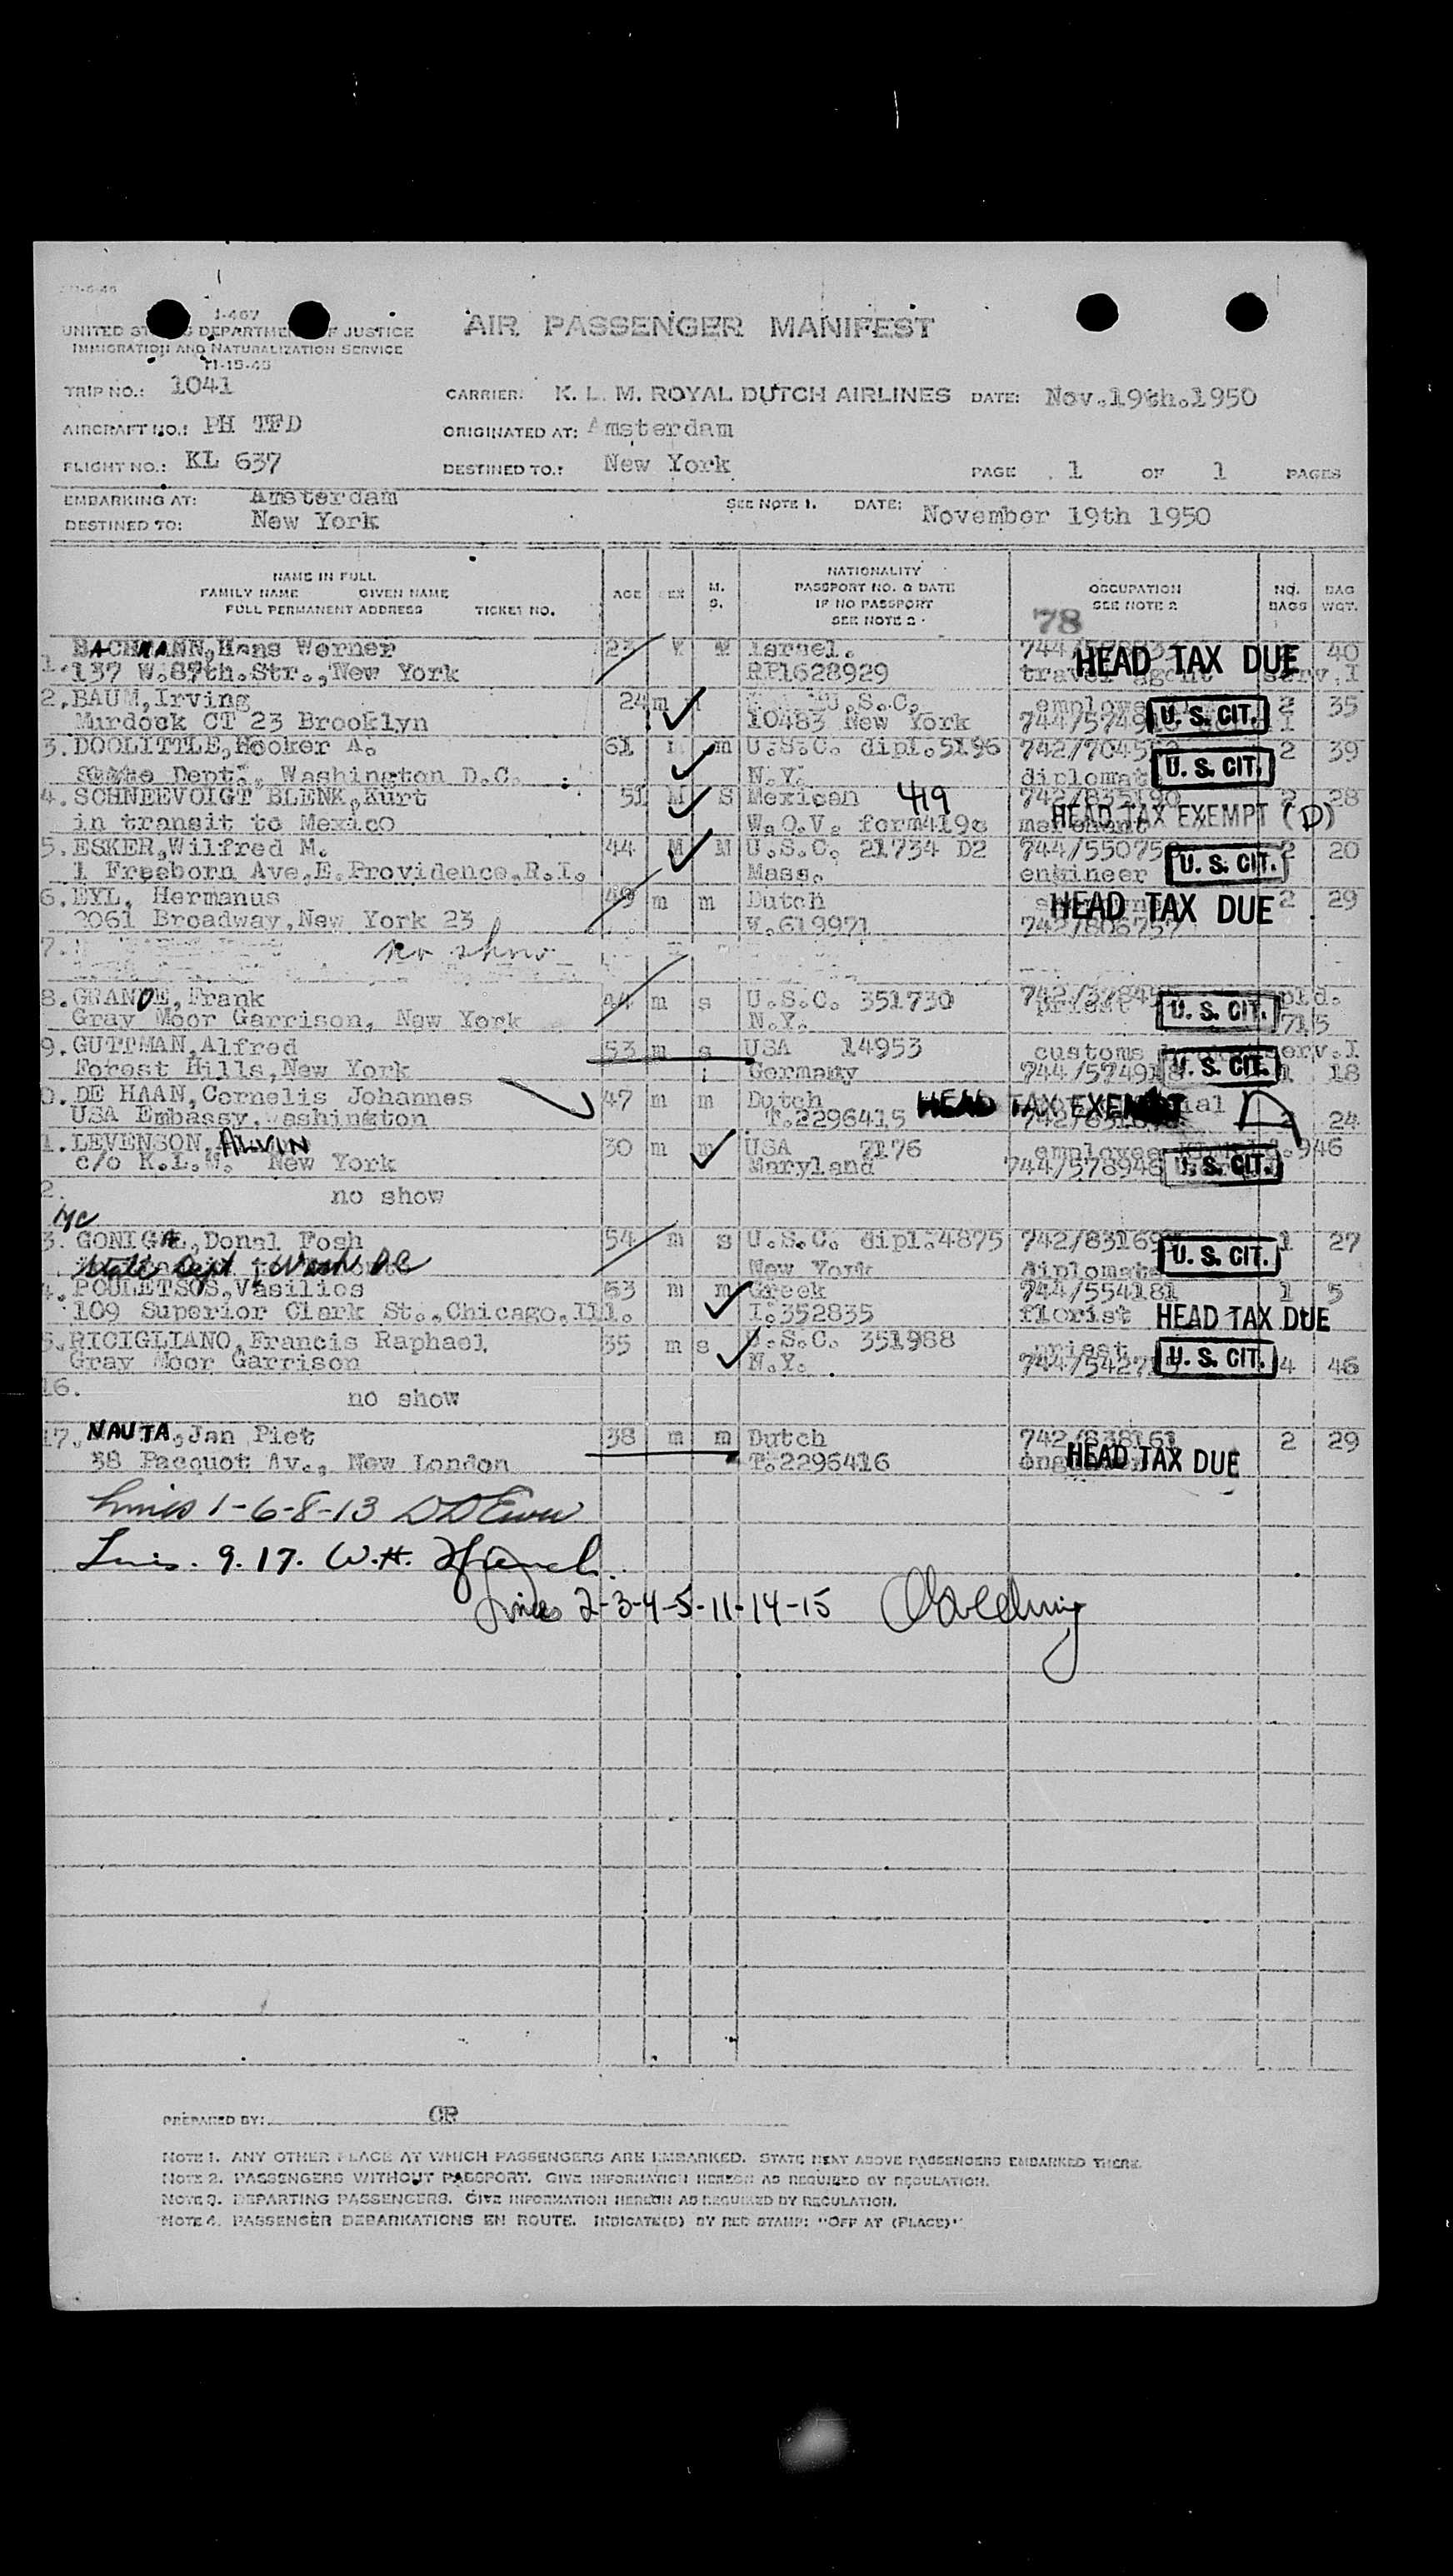 I-467
UNITED STATES DEPARTMENT OF JUSTICE
IMMIGRATION AND NATURALIZATION SERVICE
11-15-45
AIR PASSENGER MANIFEST
TRIP NO.: 1041
CARRIER: K. L. M. ROYAL DUTCH AIRLINES DATE: Nov.19th.1950
AIRCRAFT NO.: PH TFD
ORIGINATED AT: Amsterdam
FLIGHT NO.: KL 637
DESTINED TO.: New York
PAGE 1 OF 1 PAGES
EMBARKING AT: Amsterdam
SEE NOTE 1. DATE: November 19th 1950
DESTINED TO: New York
NAME IN FULL
FAMILY NAME GIVEN NAME
FULL PERMANENT ADDRESS TICKET NO.
AGE SEX M. S.
NATIONALITY
PASSPORT NO. & DATE
IF NO PASSPORT
SEE NOTE 2
OCCUPATION
SEE NOTE 2
NO. BAGS
BAG WGT.
78
BACHMANN,Hans Werner 23 Israel. 40
1. 137 W.87th.Str.,New York RP1628929 travel agent serv.1
HEAD TAX DUE
2.BAUM,Irving 24 m U.S.C. 2 35
Murdock CT 23 Brooklyn 10483 New York 1
U. S. CIT.
3.DOOLITTLE,Hooker A. 61 m U.S.C. dipl.5196 2 39
State Dept., Washington D.C. N.Y. diplomat
U. S. CIT.
4.SCHNEEVOIGT BLENK,Kurt 51 M S Mexican 419 742/835190 2 28
in transit to Mexico W.O.V. form419c merchant
HEAD TAX EXEMPT (D)
5.ESKER,Wilfred M. 44 M M U.S.C. 21734 D2 2 20
1 Freeborn Ave,E.Providence,R.I. Mass. engineer
U. S. CIT.
6.EYL, Hermanus 49 m m Dutch 2 29
2061 Broadway,New York 23 V.619971 742/806757
HEAD TAX DUE
7. no show
8.GRANDE,Frank 44 m s U.S.C. 351730 priest
Gray Moor Garrison, New York N.Y. 715
U. S. CIT.
9.GUTTMAN,Alfred 53 m s USA 14953 customs serv.1
Forest Hills,New York Germany 1 18
U. S. CIT.
0.DE HAAN,Cornelis Johannes 47 m m Dutch
USA Embassy,Washington T.2296415 2 24
HEAD TAX EXEMPT D
1.LEVENSON, ALVIN 30 m m USA 7176 employee
c/o K.L.M. New York Maryland 744/578946
U. S. CIT.
2. no show
Mc
3. GONIGAL,Donal Fosh 54 m s U.S.C. dipl.4875 1 27
State Dept Wash DC New York diplomat
U. S. CIT.
4.POULETSOS,Vasilios 53 m m Greek 744/554181 1 5
109 Superior Clark St.,Chicago,Ill. I.352835 florist
HEAD TAX DUE
5.RICIGLIANO,Francis Raphael. 35 m s U.S.C. 351988 priest
Gray Moor Garrison N.Y. 4 46
U. S. CIT.
16. no show
17. NAUTA,Jan Piet 38 m m Dutch 742/838161 2 29
38 Pacquot Av., New London T.2296416
HEAD TAX DUE
Lines 1-6-8-13
Lines. 9.17. W.H.
Lines 2-3-4-5-11-14-15
PREPARED BY: CR
NOTE 1. ANY OTHER PLACE AT WHICH PASSENGERS ARE EMBARKED. STATE NEXT ABOVE PASSENGERS EMBARKED THERE.
NOTE 2. PASSENGERS WITHOUT PASSPORT. GIVE INFORMATION HEREON AS REQUIRED BY REGULATION.
NOTE 3. DEPARTING PASSENGERS. GIVE INFORMATION HEREON AS REQUIRED BY REGULATION.
NOTE 4. PASSENGER DEBARKATIONS EN ROUTE. INDICATE(D) BY RED STAMP: "OFF AT (PLACE)"